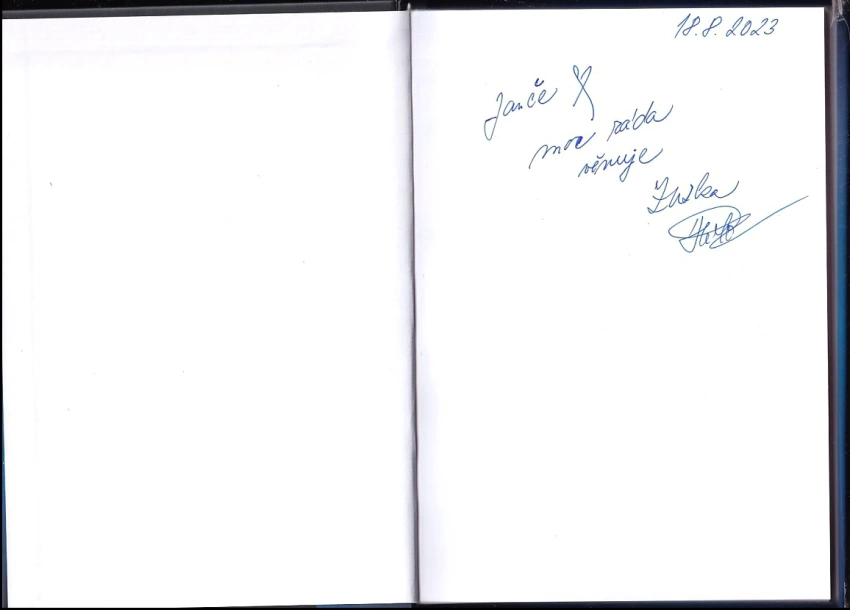 18.8.2023
Janče
moc ráda
věnuje